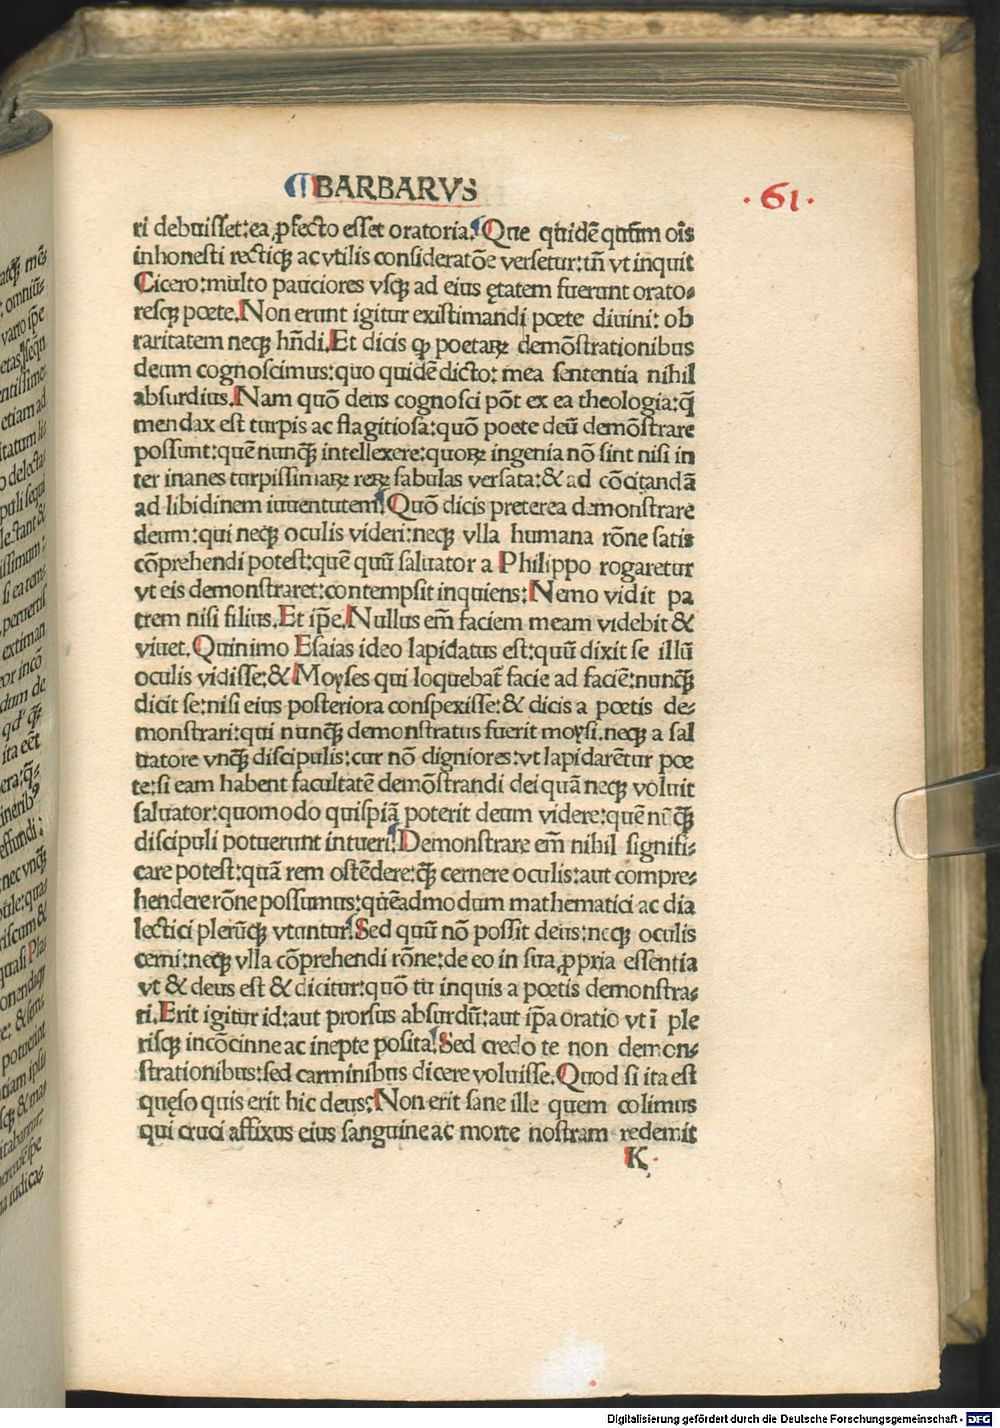 BARBARVS
.61.
ri debuisset:ea ꝓfecto esset oratoria. Que quidē quum oīs
inhonesti rectiqꝫ ac vtilis consideratōe versetur:tn̄ vt inquit
Cicero:multo pauciores vsqꝫ ad eius ętatem fuerunt orato⸗
resqꝫ poete. Non erunt igitur existimandi poete diuini: ob
raritatem neqꝫ hn̄di. Et dicis ꝙ poetaꝝ demōstrationibus
deum cognoscimus:quo quidē dicto: mea sententia nihil
absurdius. Nam quō deus cognosci pōt ex ea theologia:q̄
mendax est turpis ac flagitiosa:quō poete deū demōstrare
possunt:quē nunqꝫ intellexere:quoꝝ ingenia nō sint nisi in
ter inanes turpissimaꝝ reꝝ fabulas versata:& ad cōcitandā
ad libidinem iuuentutem. Quō dicis preterea demonstrare
deum:qui neqꝫ oculis videri:neqꝫ vlla humana rōne satis
cōprehendi potest:quē quū saluator a Philippo rogaretur
vt eis demonstraret:contempsit inquiens: Nemo vidit pa
trem nisi filius. Et ip̄e. Nullus em̄ faciem meam videbit &
viuet. Quinimo Esaias ideo lapidatus est:quū dixit se illū
oculis vidisse:& Moyses qui loquebat̄ facie ad faciē:nunqꝫ
dicit se:nisi eius posteriora conspexisse:& dicis a poetis de⸗
monstrari:qui nunqꝫ demonstratus fuerit moysi.neqꝫ a sal
uatore vnqꝫ discipulis:cur nō digniores:vt lapidarētur poe
te:si eam habent facultatē demōstrandi dei quā neqꝫ voluit
saluator:quomodo quispiā poterit deum videre:quē nūqꝫ
discipuli potuerunt intueri. Demonstrare em̄ nihil signifi⸗
care potest:quā rem ostēdere:qꝫ cernere oculis:aut compre⸗
hendere rōne possumus:quēadmodum mathematici ac dia
lectici plerūqꝫ vtuntur. Sed quū nō possit deus:neqꝫ oculis
cerni:neqꝫ vlla cōprehendi rōne:de eo in sua ꝓpria essentia
vt & deus est & dicitur:quō tu inquis a poetis demonstra⸗
ri. Erit igitur id:aut prorsus absurdū:aut ip̄a oratio vt ī ple
risqꝫ incōcinne ac inepte posita. Sed credo te non demon⸗
strationibus:sed carminibus dicere voluisse. Quod si ita est
quęso quis erit hic deus: Non erit sane ille quem colimus
qui cruci affixus eius sanguine ac morte nostram redemit
K
Digitalisierung gefördert durch die Deutsche Forschungsgemeinschaft - DFG